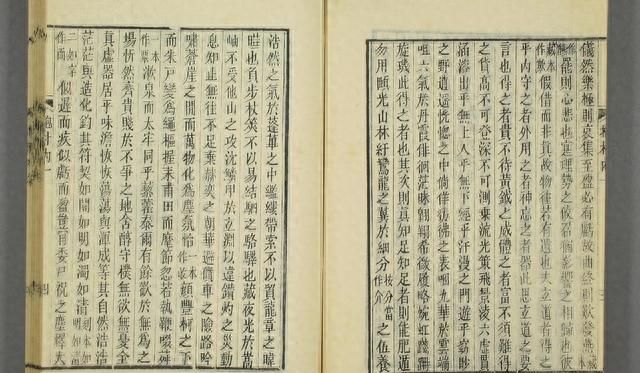 儀然樂極則哀集至盈必有虧故曲終則歎發讌
罷則心悲也寔理勢之攸召猶影響之相歸也彼
藏本作歎假借而非真故物往若有遺也夫玄道者得之
乎內守之者外用之者神忘之者器此思玄道之要
言也得之者貴不待黃鉞之威體之者富不須難得
之貨高不可登深不可測乘流光策飛景凌六虛貫
涵溶出乎無上入乎無下經乎汗漫之門遊乎窈眇
之野逍遙恍惚之中倘佯彷彿之表咽九華於雲端
咀六氣於丹霞俳徊茫昧翱翔希微履略蜿虹踐跚
旋璣此得之者也其次則真知足知足者則能肥遁
勿用頤光山林紆鸞龍之翼於細分按分當作介之伍養
浩然之氣於蓬蓽之中繿縷帶索不以貿龍章之暐
曄也負步杖筴不以易結駟之駱驛也藏夜光於嵩
岫不受他山之攻沈鱗甲於玄淵以違鑽灼之災動
息知止無往不足棄赫奕之朝華避僨車之險路吟
嘯蒼崖之間而萬物化為塵氛怡一本作恬顏豐柯之下
而朱戶變為繩樞握耒甫田而麾節忽若執鞭啜荈
一本作茶漱泉而太牢同乎藜藿泰爾有餘歡於無為之
場忻然齊貴賤於不爭之地含醇守樸無欲無憂全
真虛器居平味澹恢恢蕩蕩與渾成等其自然浩浩
茫茫與造化鈞其符契如闇如明如濁如清刻本如明如清
二如字作而似遲而疾似虧而盈豈肯委尸祝之塵釋大